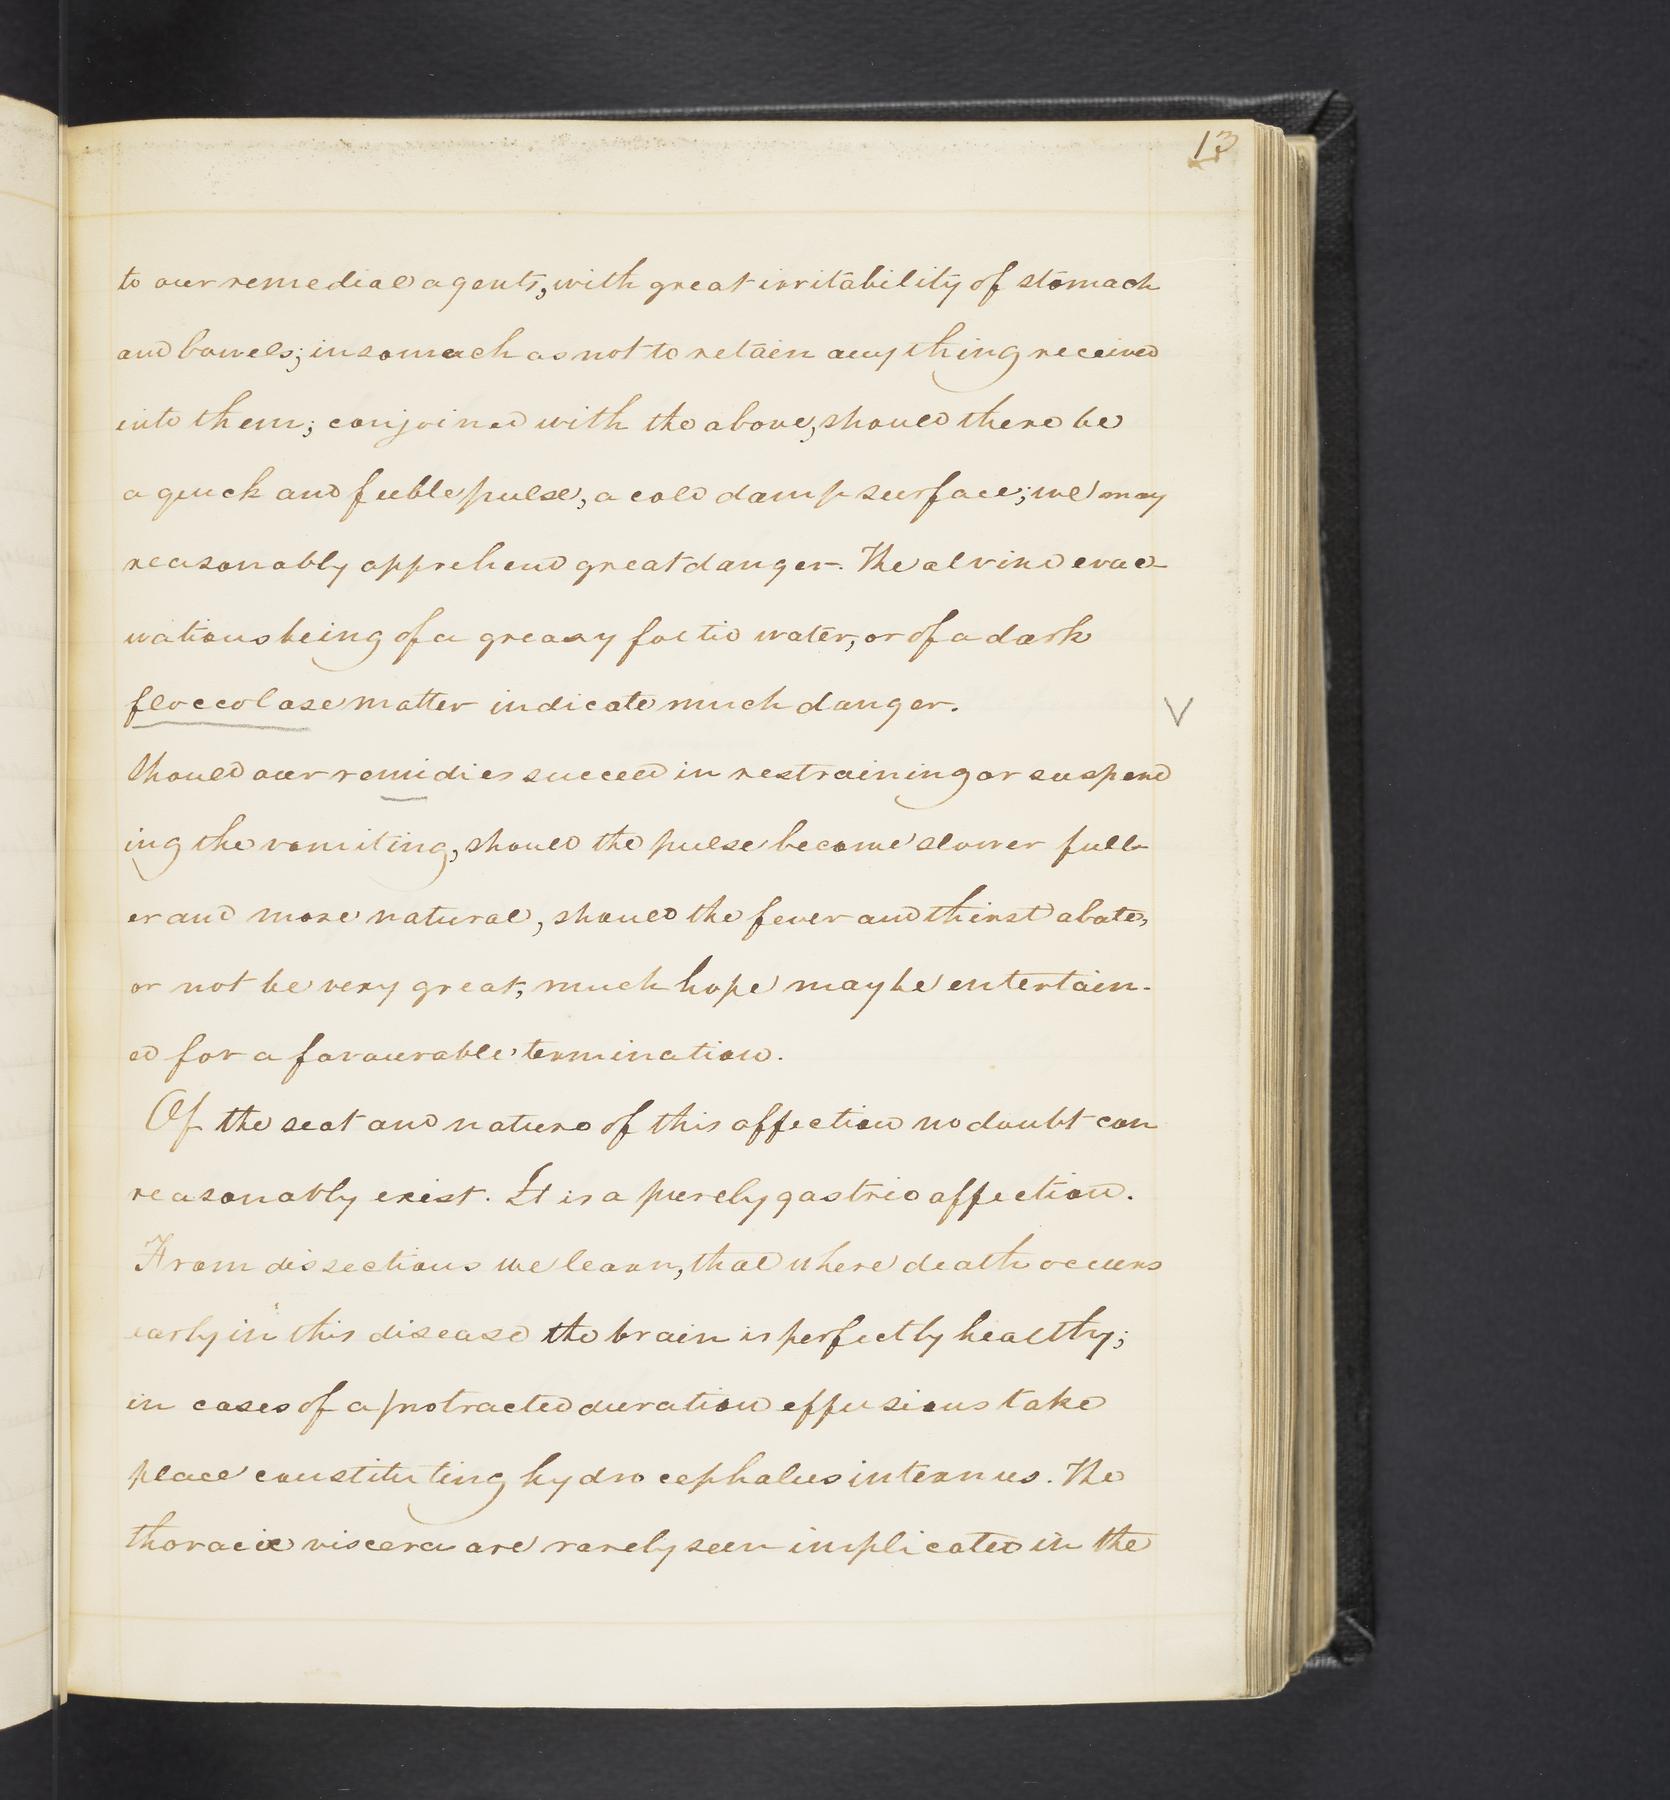 13
to our remedial agents, with great irritability of stomach
and bowels; insomuch as not to retain any thing received
into them; conjoined with the above, should there be
a quick and feeble pulse, a cold damp surface; we may
reasonably apprehend great danger. The alvine evac-
uations being of a greasy foetid water, or of a dark
floccolase matter indicate much danger.
Should our remidies succeed in restraining or suspend
ing the vomiting, should the pulse become slower full-
er and more natural, should the fever and thirst abate,
or not be very great, much hope may be entertain-
ed for a favourable termination.
Of the seat and nature of this affection no doubt can
reasonably exist. It is a purely gastric affection.
From dissections we learn, that where death occurs
early in this disease the brain is perfectly healthy;
in cases of a protracted duration effusions take
place constituting hydrocephalus internus. The
thoracic viscera are rarely seen implicated in the